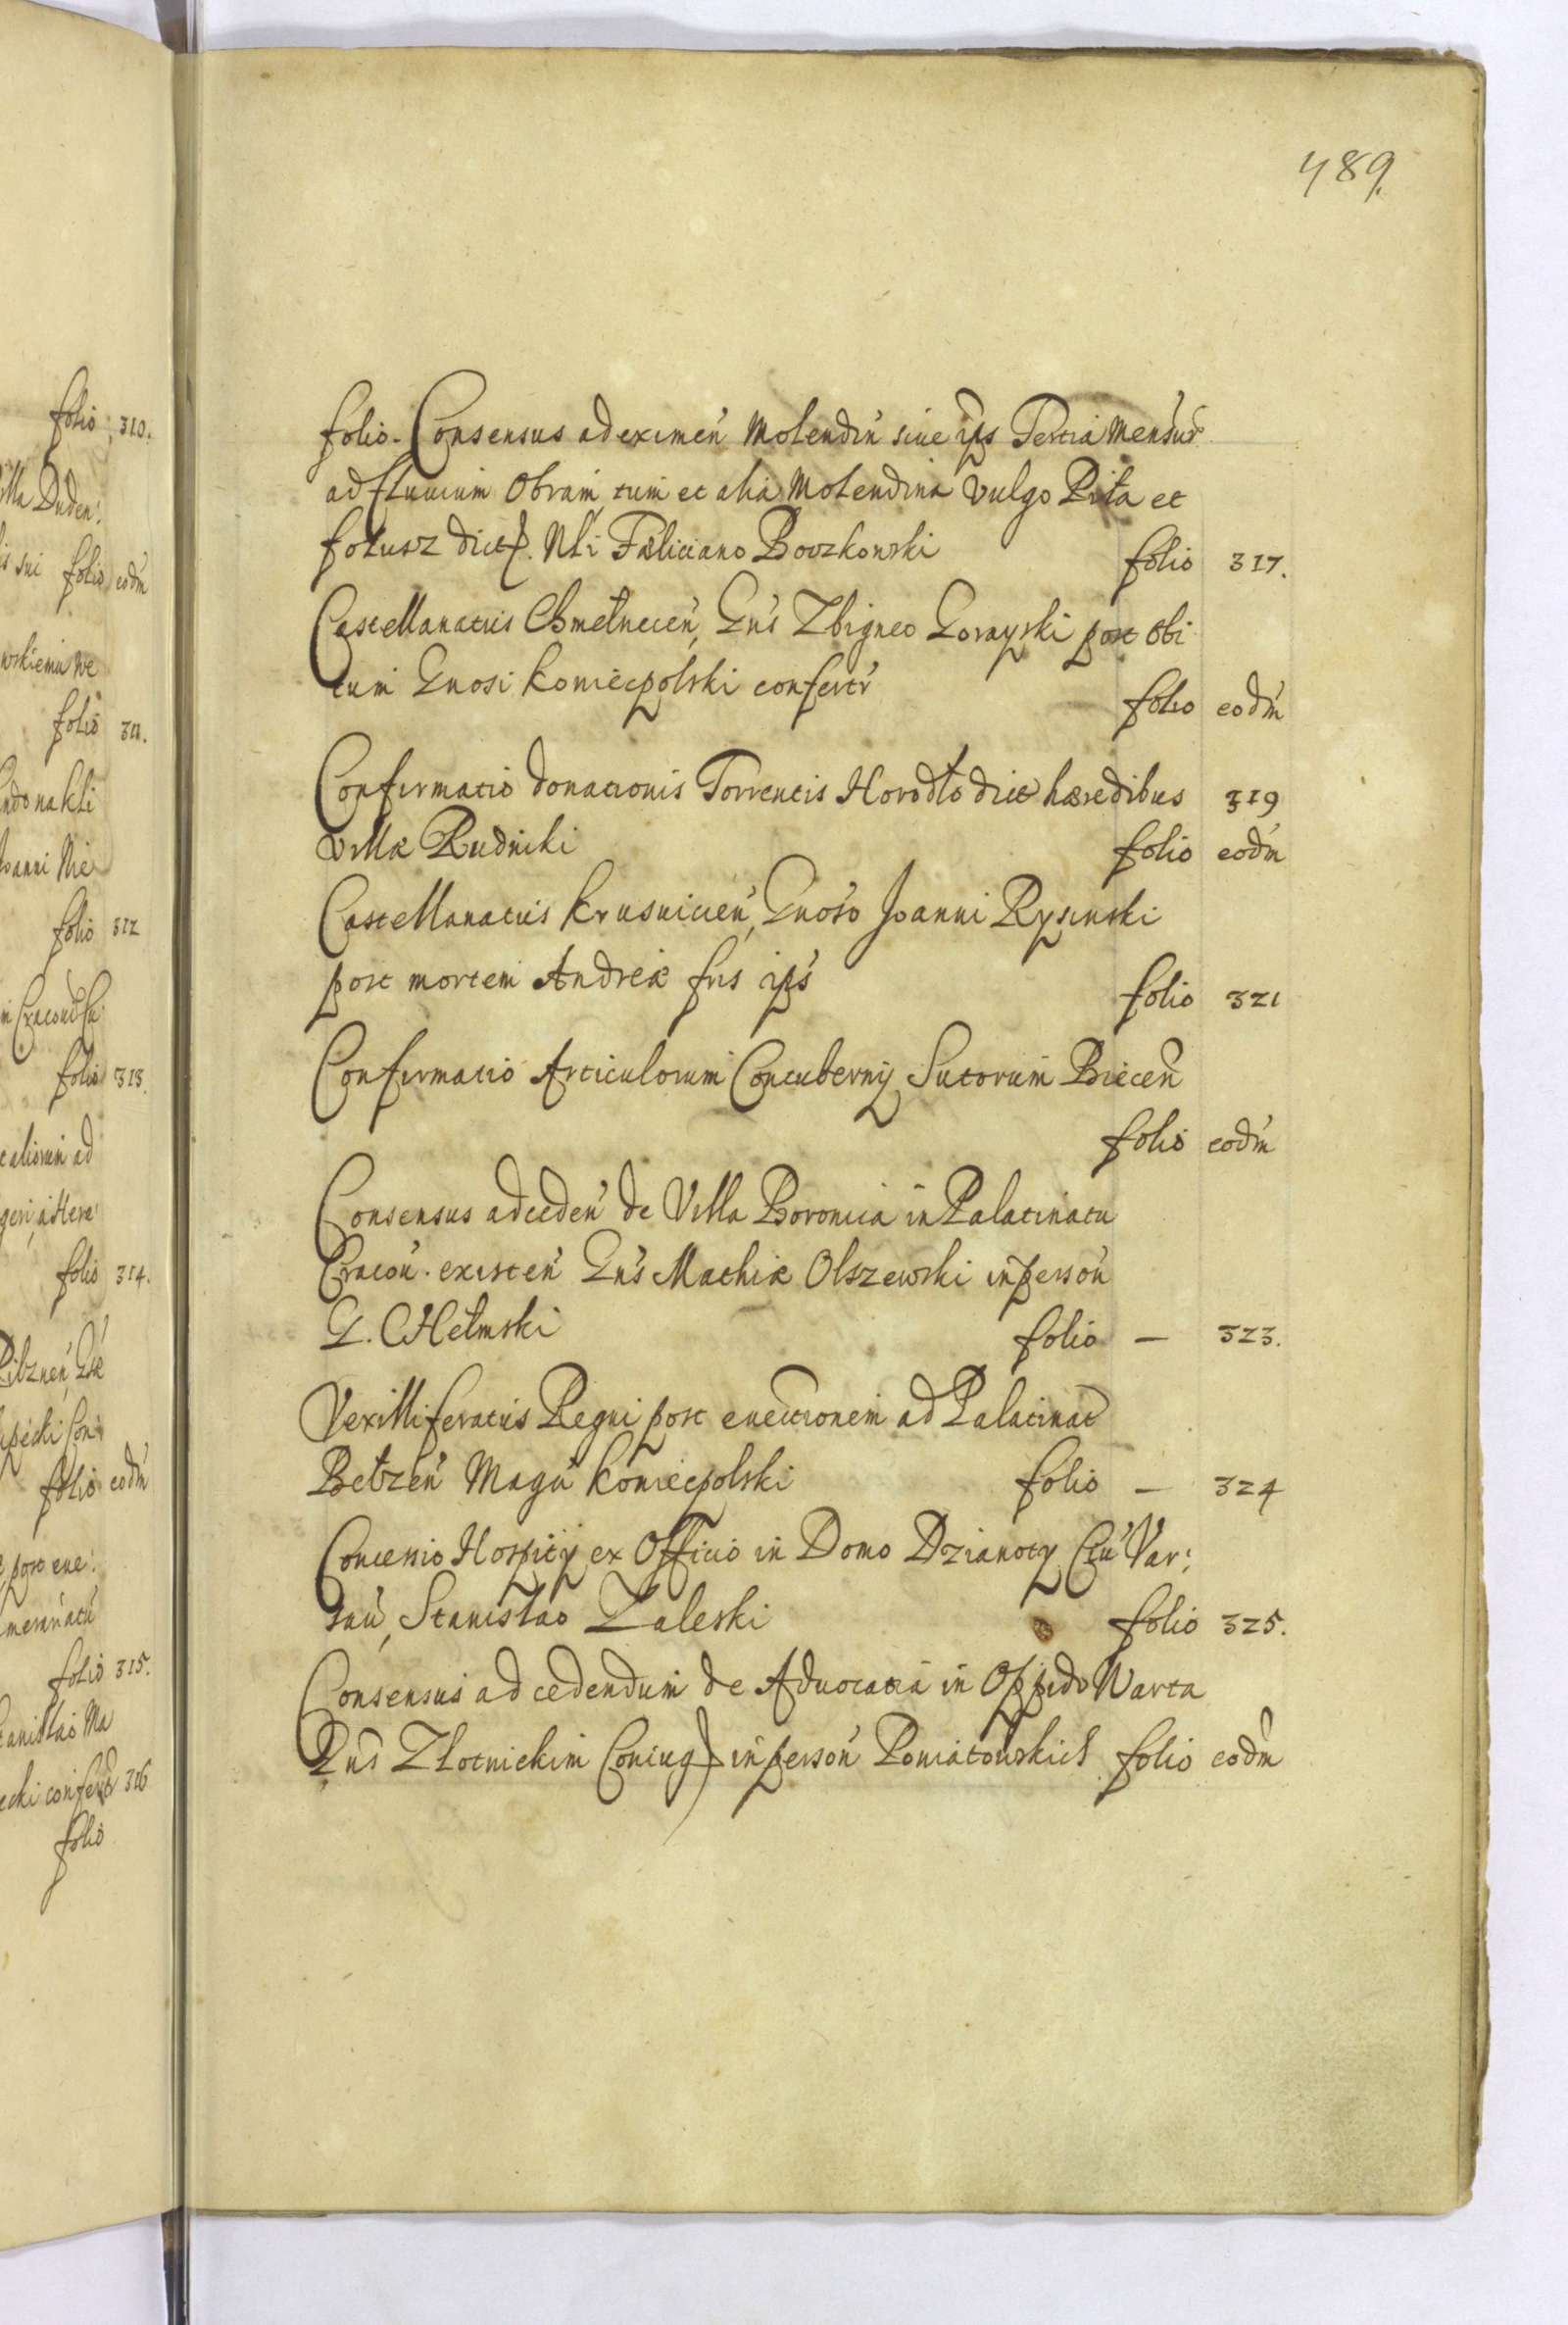 folio 310.
illa Duden:
is sui folio eodm
wskiemu we
folio 311.
oanni Nie
folio 312
folio 313.
caliorum ad
folio 314.
Pilznen
folio eodm
post eue:
folio 315.
tanislao Ma
ecki confertr 316
folio
489.
folio. Consensus ad eximen Molendin siue ips Tertia Mensur
ad fluuium Obram, tum et alia Molendina vulgo Piła et
folusz dict. Nli Fæliciano Bovzkowski folio 317.
Castellanatus Chmelnicen, Gns Zbigneo Gorayski post obi
tum Gnosi Koniecpolski confertr folio eodm
Confirmatio donationis Torrentis Horodło dict hæredibus 319
villæ Rudniki folio eodm
Castellanatus Krusvicien, Gnoso Joanni Rysinski
post mortem Andreæ fris ips folio 321
Confirmatio Articulorum Contubernij Sutorum Biecen
folio eodm
Consensus ad ceden de Villa Boronica in Palatinatu
Cracou. existen Gns Mathiæ Olszewski in person
G. CHełmski folio — 323.
Vexilliferatus Regni post euectionem ad Palatinat
Bełzen Magn Koniecpolski folio — 324
Concessio Hospitij ex Officio in Domo Dzianoty Ciu Var:
sau, Stanisłao Zaleski folio 325.
Consensus ad cedendum de Aduocatia in Oppido Warta
Gns Złotnickim Coniug in person Poniatowskich folio eodm